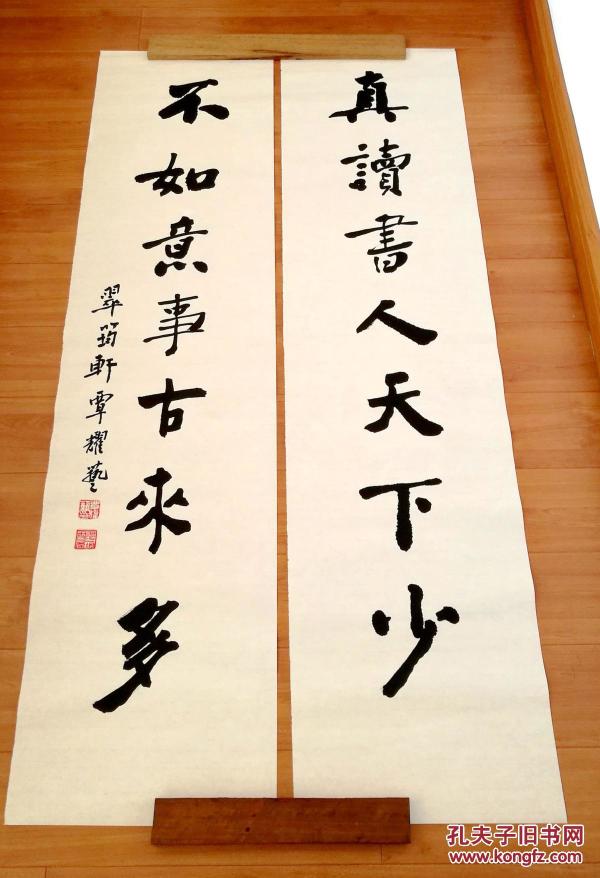 真讀書人天下少
不如意事古來多
翠筠軒覃耀藝
孔夫子旧书网
www.kongfz.com